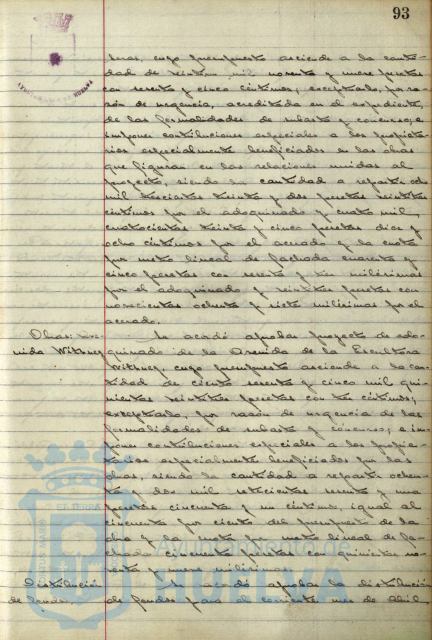 93
AYUNTAMIENTO DE HUELVA
beras, cuyo presupuesto asciende a la canti-
dad de treinta mil noventa y nueve pesetas
con sesenta y cinco céntimos; exceptuado, por ra-
zón de urgencia, acreditada en el expediente,
de las formalidades de subasta y concurso; e
imponer contribuciones especiales a los propieta-
rios especialmente beneficiados en las obras
que figuran en las relaciones unidas al
proyecto, siendo la cantidad a repartir ocho
mil trescientas treinta y dos pesetas veintisiete
céntimos por el adoquinado y cuatro mil
cuatrocientas treinta y cinco pesetas diez y
ocho céntimos por el acerado y la cuota
por metro lineal de fachada cuarenta y
cinco pesetas con sesenta y tres milésimas
por el adoquinado y veintitres pesetas con
novecientas ochenta y siete milésimas por el
acerado.
Obras: Ave-
nida Withney
Se acordó aprobar proyecto de ado-
quinado de la Avenida de la Escultora
Withney, cuyo presupuesto asciende a la can-
tidad de ciento sesenta y cinco mil qui-
nientas veintitres pesetas con tres céntimos;
exceptuado, por razón de urgencia de las
formalidades de subasta y concurso; e im-
poner contribuciones especiales a los propie-
tarios especialmente beneficiados por las
obras, siendo la cantidad a repartir ochen-
ta y dos mil setecientas sesenta y una
pesetas cincuenta y un céntimos, igual al
cincuenta por ciento del presupuesto de la
obra y la cuota por metro lineal de fa-
chada cincuenta pesetas con quinientas no-
venta y nueve milésimas.
Distribución
de fondos
Se acordó aprobar la distribución
de fondos para el corriente mes de Abril,
Ayuntamiento de
HUELVA